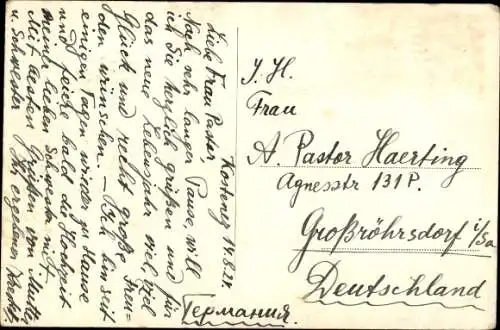 Kostenez 14.5.28.
Liebe Frau Pastor,
Nach sehr langer Pause, will
ich Sie herzlich grüßen und für
das neue Lebensjahr viel, viel
Glück und recht große Freu-
den wünschen. – Ich bin seit
einigen Tagen wieder zu Hause
und feiere bald die Hochzeit
meiner lieben Schwester mit.
Mit besten Grüßen von Mutter
u. Schwester Ihr ergebener
I. H.
Frau
A. Pastor Haerting
Agnesstr 131 P.
Großröhrsdorf i/Sa
Deutschland
Германия.